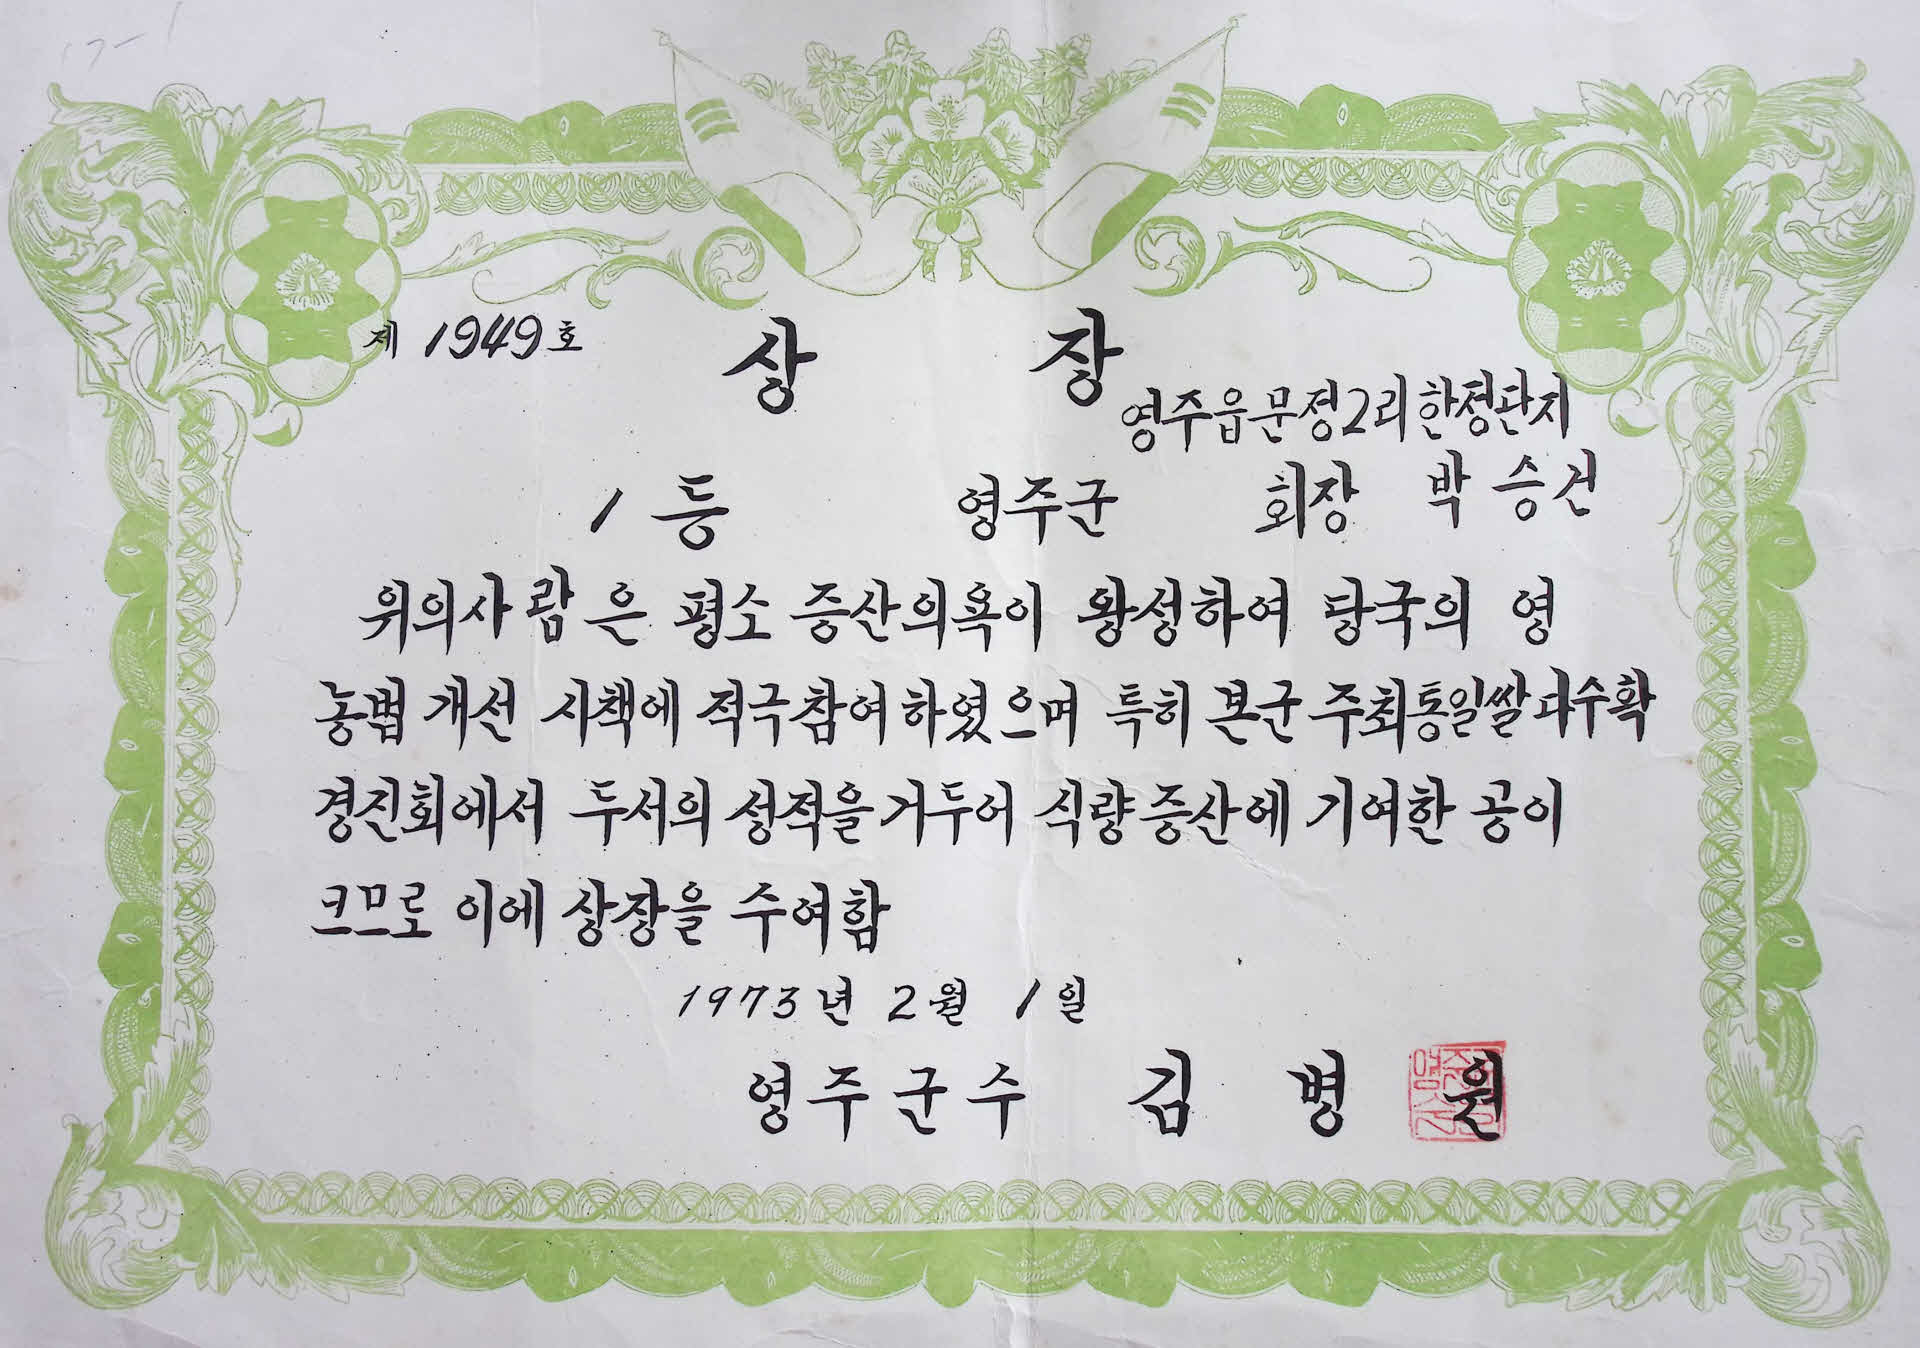 제 1949 호
상 장
영주읍문정2리한정단지
1 등 영주군 회장 박승건
위의사람은 평소 증산의욕이 왕성하여 당국의 영
농법 개선 시책에 적극참여하였으며 특히 본군 주최통일쌀다수확
경진회에서 두서의 성적을 거두어 식량증산에 기여한 공이
크므로 이에 상장을 수여함
1973년 2월 1일
영주군수 김 병 원